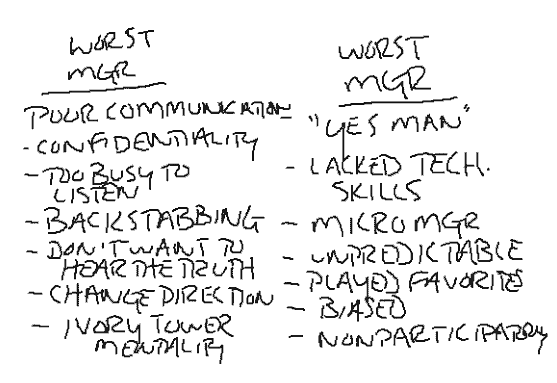 WORST
MGR
POOR COMMUNICATION
- CONFIDENTIALITY
- TOO BUSY TO
LISTEN
- BACKSTABBING
- DON'T WANT TO
HEAR THE TRUTH
- CHANGE DIRECTION
- IVORY TOWER
MENTALITY
WORST
MGR
"YES MAN"
- LACKED TECH.
SKILLS
- MICRO MGR
- UNPREDICTABLE
- PLAYED FAVORITES
- BIASED
- NONPARTICIPATORY